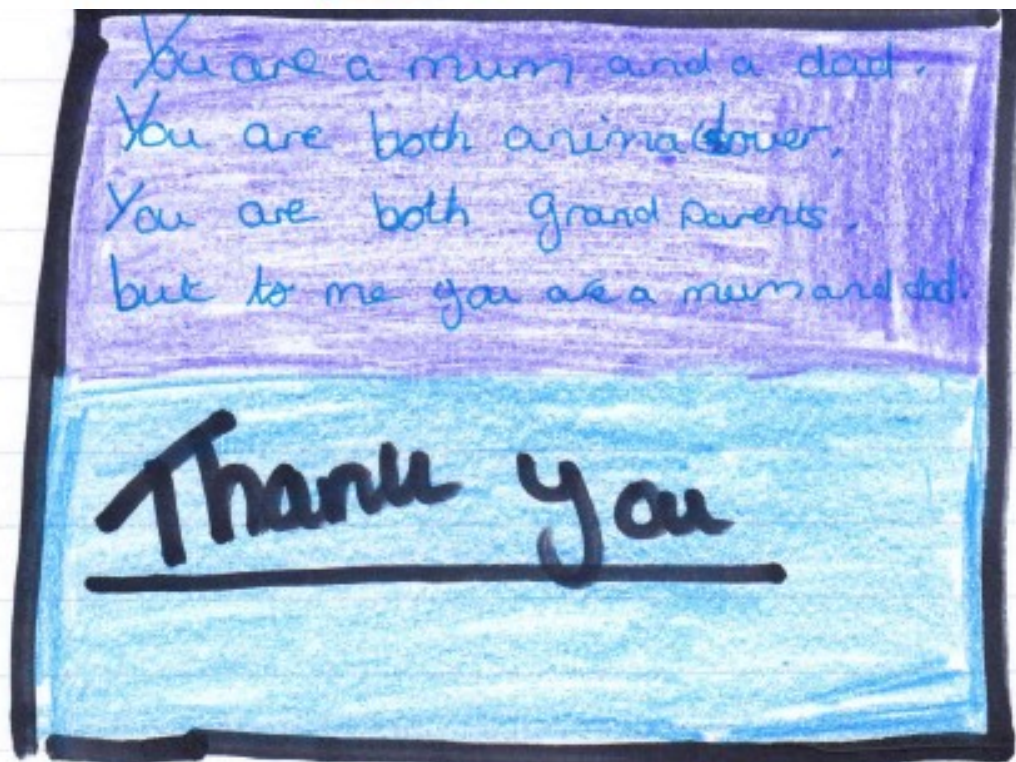 You are a mum and a dad.
You are both animal lover,
You are both grand parents,
but to me you are a mum and dad.
Thank you